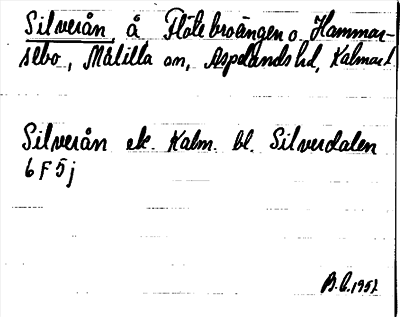 Silverån, å Flötebroängen o. Hammar-
sebo, Målilla sn, Aspelands hd, Kalmar l.
Silverån ek. Kalm. bl. Silverdalen
6 F 5 j
1957.